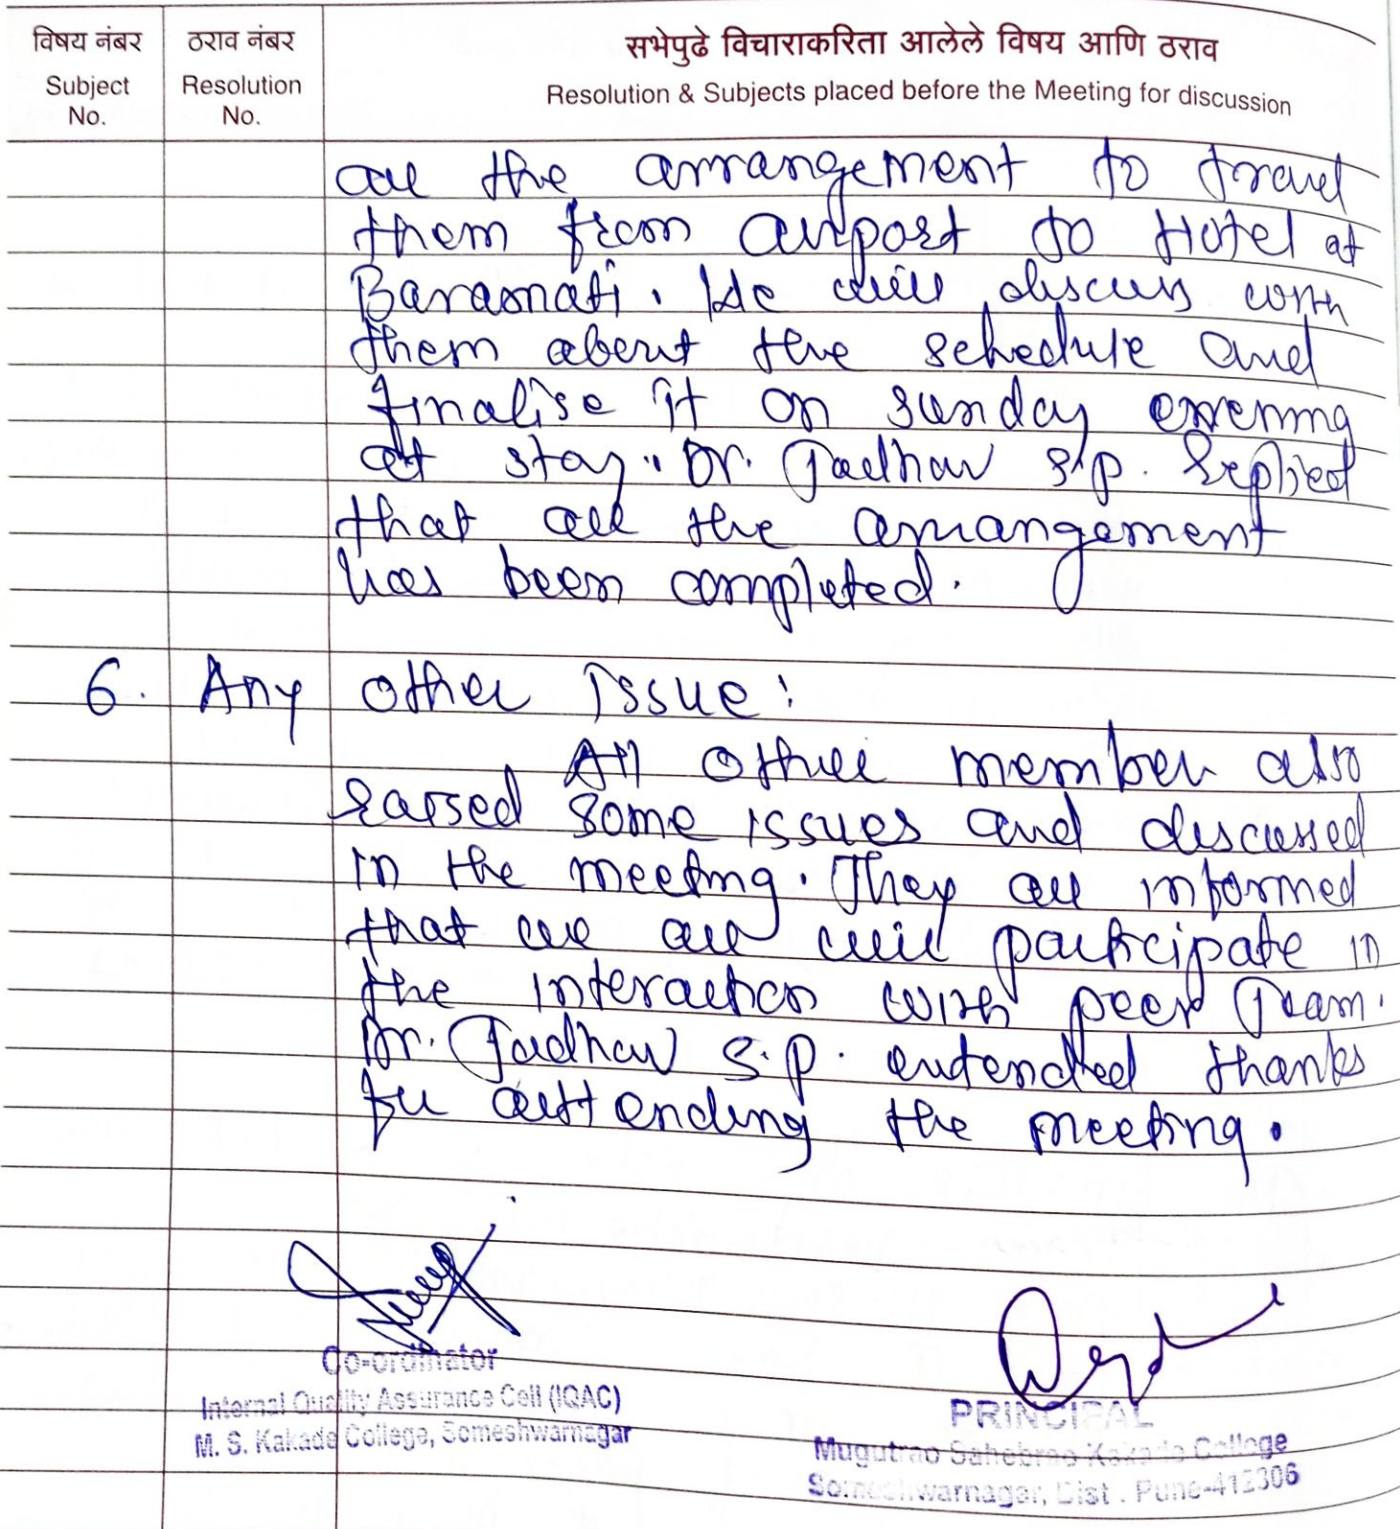 विषय नंबर
Subject
No.
ठराव नंबर
Resolution
No.
सभेपुढे विचाराकरिता आलेले विषय आणि ठराव
Resolution & Subjects placed before the Meeting for discussion
all the arrangement to travel
them from airport to Hotel at
Baramati. We will discuss with
them about the schedule and
finalise it on sunday evening
at stay. Dr. Jadhav S.P. replied
that all the arrangement
has been completed.
6. Any other Issue:
All other member also
raised some issues and discussed
in the meeting. They all informed
that we all will participate in
the interaction with peer Team.
Dr. Jadhav S.P. extended thanks
for attending the meeting.
Co-ordinator
Internal Quality Assurance Cell (IQAC)
M. S. Kakade College, Someshwarnagar
PRINCIPAL
Mugutrao Sahebrao Kakade College
Someshwarnagar, Dist. Pune-412306